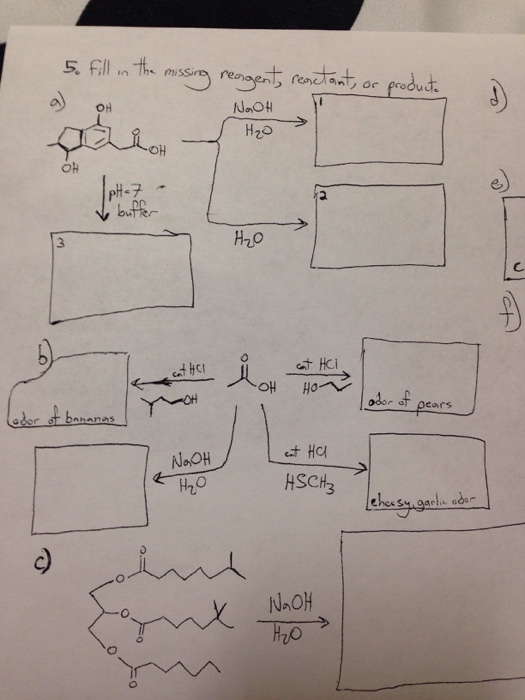 5. Fill in the missing reagent, reactant, or product.
a)
OH
O
OH
OH
NaOH
H2O
1
H2O
2
pH=7
buffer
3
d)
e)
C
f)
b)
odor of bananas
cat HCl
OH
O
OH
cat HCl
HO
odor of pears
NaOH
H2O
cat HCl
HSCH3
cheesy, garlic odor
c)
O
O
O
O
O
O
NaOH
H2O